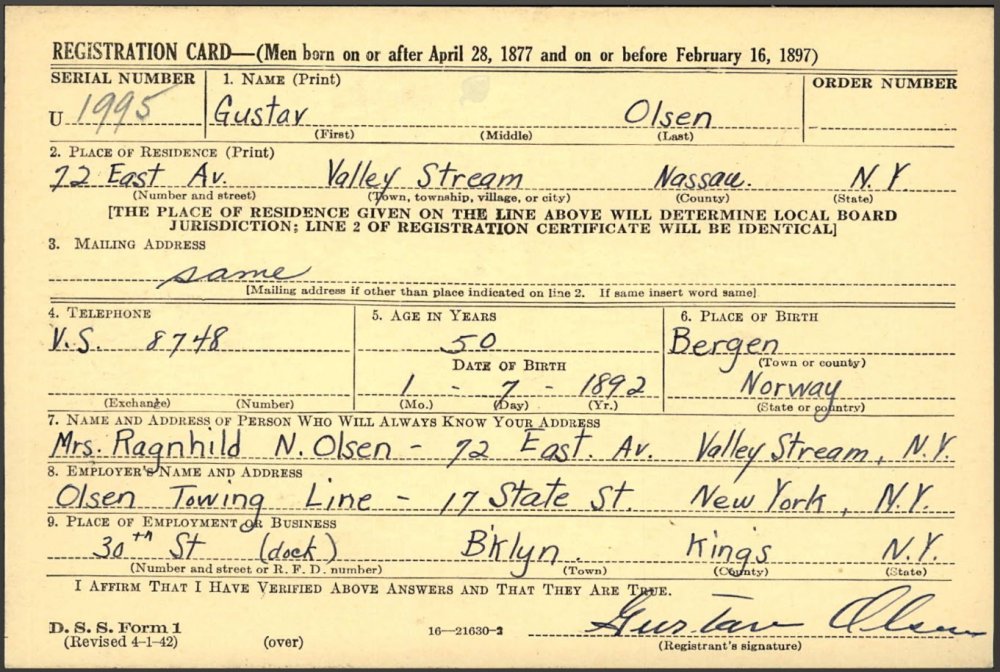 REGISTRATION CARD—(Men born on or after April 28, 1877 and on or before February 16, 1897)
SERIAL NUMBER 1. NAME (Print) ORDER NUMBER
U 1995 Gustav Olsen
(First) (Middle) (Last)
2. PLACE OF RESIDENCE (Print)
72 East Av. Valley Stream Nassau. N.Y.
(Number and street) (Town, township, village, or city) (County) (State)
[THE PLACE OF RESIDENCE GIVEN ON THE LINE ABOVE WILL DETERMINE LOCAL BOARD
JURISDICTION; LINE 2 OF REGISTRATION CERTIFICATE WILL BE IDENTICAL]
3. MAILING ADDRESS
same
[Mailing address if other than place indicated on line 2. If same insert word same]
4. TELEPHONE 5. AGE IN YEARS 6. PLACE OF BIRTH
V.S. 8748 50 Bergen
DATE OF BIRTH (Town or county)
1 - 7 - 1892 Norway
(Exchange) (Number) (Mo.) (Day) (Yr.) (State or country)
7. NAME AND ADDRESS OF PERSON WHO WILL ALWAYS KNOW YOUR ADDRESS
Mrs. Ragnhild N. Olsen - 72 East. Av. Valley Stream, N.Y.
8. EMPLOYER'S NAME AND ADDRESS
Olsen Towing Line - 17 State St. New York, N.Y.
9. PLACE OF EMPLOYMENT OR BUSINESS
30th St (dock) B'klyn. Kings N.Y.
(Number and street or R. F. D. number) (Town) (County) (State)
I AFFIRM THAT I HAVE VERIFIED ABOVE ANSWERS AND THAT THEY ARE TRUE.
Gustav Olsen
D. S. S. Form 1 16—21630-2
(Revised 4-1-42) (over) (Registrant's signature)